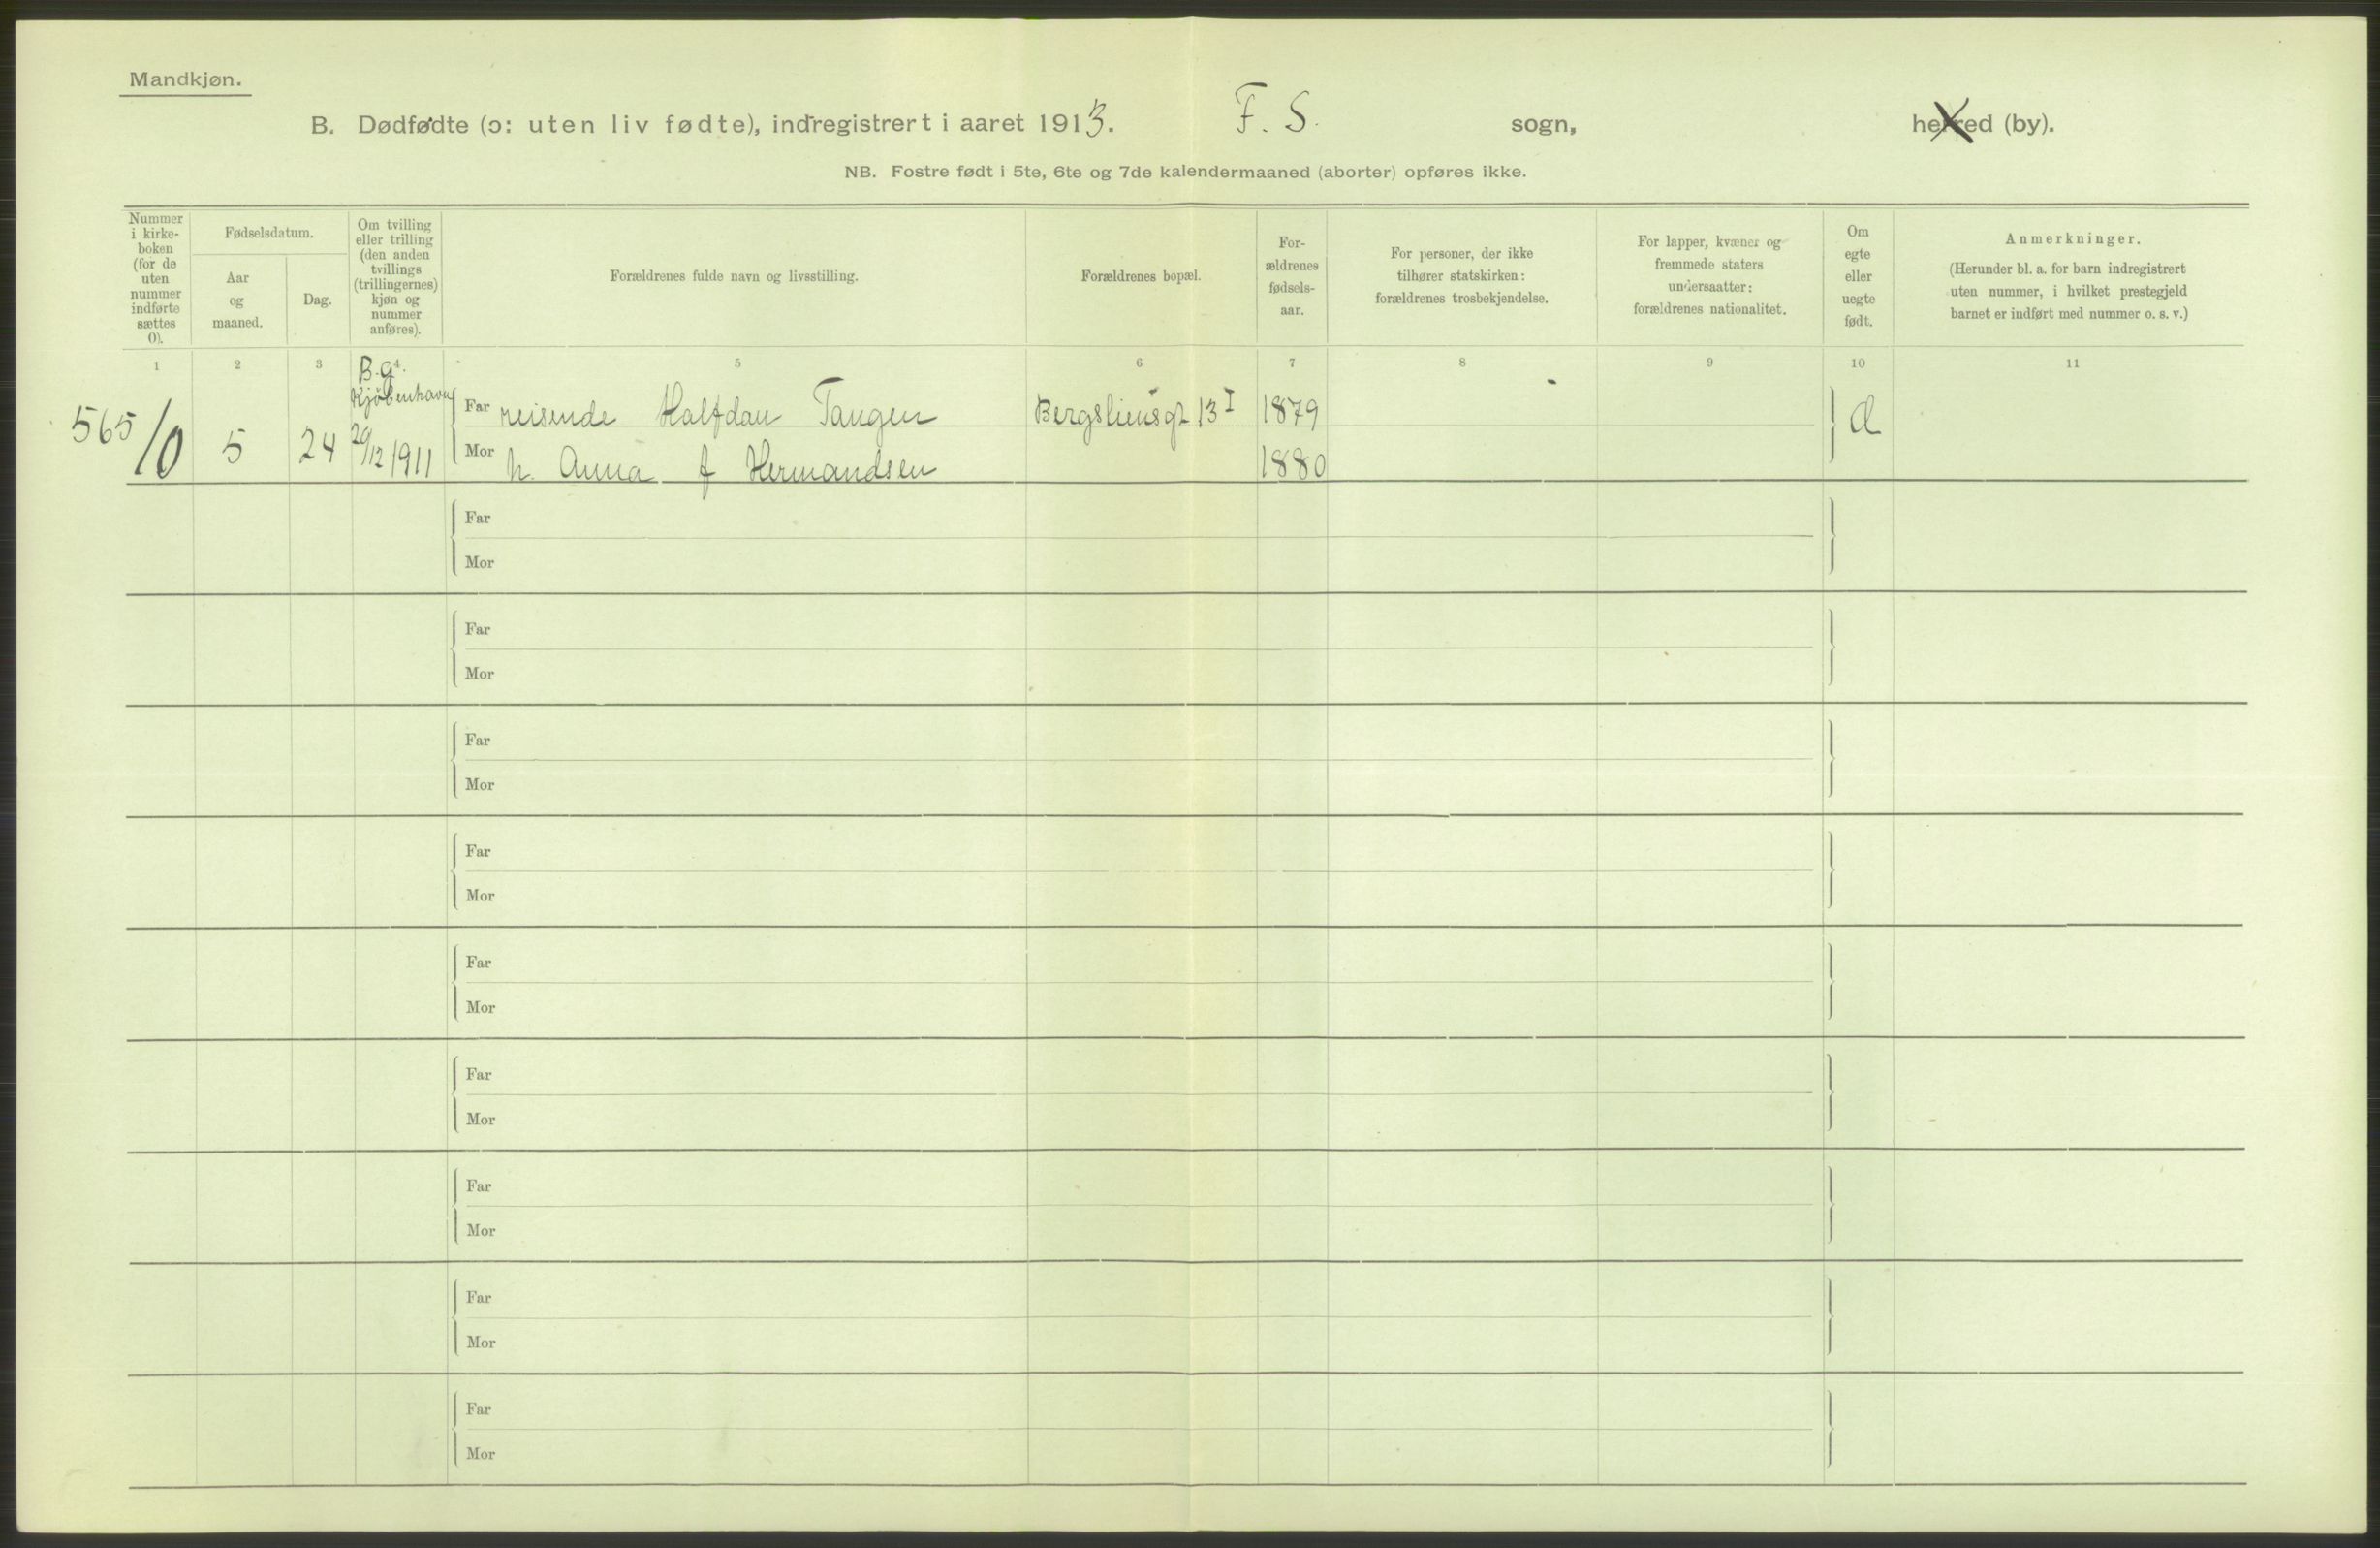 Mandkjøn.
B. Dødfødte (ɔ: uten liv fødte), indregistrert i aaret 1913. F. S. sogn, herred (by).
NB. Fostre født i 5te, 6te og 7de kalendermaaned (aborter) opføres ikke.
Nummer
i kirke-
boken
(for de
uten
nummer
indførte
sættes
0).
Fødselsdatum.
Aar
og
maaned.
Dag.
Om tvilling
eller trilling
(den anden
tvillings
(trillingernes)
kjøn og
nummer
anføres).
Forældrenes fulde navn og livsstilling.
Forældrenes bopæl.
For-
ældrenes
fødsels-
aar.
For personer, der ikke
tilhører statskirken:
forældrenes trosbekjendelse.
For lapper, kvæner og
fremmede staters
undersaatter:
forældrenes nationalitet.
Om
egte
eller
uegte
født.
Anmerkninger.
(Herunder bl. a. for barn indregistrert
uten nummer, i hvilket prestegjeld
barnet er indført med nummer o. s. v.)
1 2 3 4 5 6 7 8 9 10 11
B.g.
Kjöbenhavn
565/0 5 24 29/12 1911
Far reisende Halfdan Tangen Bergsliensgt 13 I 1879
Mor h. Anna f Hermandsen 1880
Far
Mor
Far
Mor
Far
Mor
Far
Mor
Far
Mor
Far
Mor
Far
Mor
Far
Mor
Far
Mor